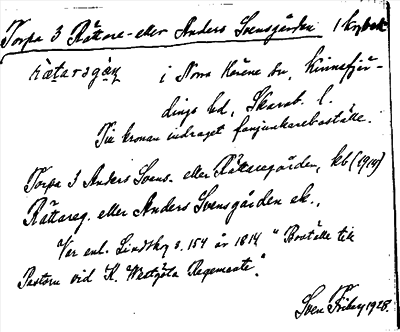 Torpa 3 Rättare- eller Anders Svensgården 1 kr.
rätarəgån i Norra Kedum sn, Kinnefjär-
dings hd, Skarab. l.
Till kronan indraget fanjunkareboställe.
Torpa 3 Anders Svens- eller Rättaregården, kb (1914)
Rättareg. eller Anders Svensgården ek.,
Var enl. Lindskog s. 154 år 1814 "Boställe till
Pastorn vid K. Westgöta Regemente".
Sven Friberg 1928.